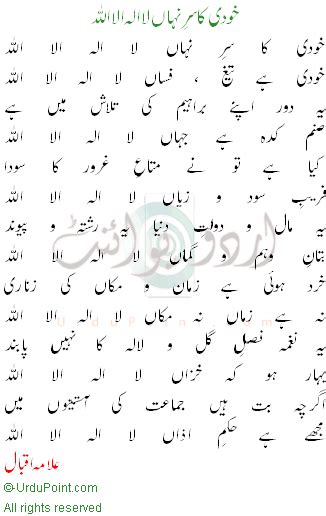 خودی کا سر نہاں لا الہ الا اللہ
خودی کا سرِ نہاں لا الہ الا اللہ
خودی ہے تیغ ، فساں لا الہ الا اللہ
یہ دور اپنے براہیم کی تلاش میں ہے
صنم کدہ ہے جہاں لا الہ الا اللہ
کیا ہے تو نے متاعِ غرور کا سودا
فریبِ سود و زیاں لا الہ الا اللہ
یہ مال و دولت دنیا یہ رشتہ و پیوند
بتانِ وہم و گماں لا الہ الا اللہ
خرد ہوئی ہے زمان و مکاں کی زناری
نہ ہے زماں نہ مکاں لا الہ الا اللہ
یہ نغمہ فصلِ گل و لالہ کا نہیں پابند
بہار ہو کہ خزاں لا الہ الا اللہ
اگرچہ بت ہیں جماعت کی آستینوں میں
مجھے ہے حکمِ اذاں لا الہ الا اللہ
علامہ اقبال
©UrduPoint.com
All rights reserved
اردو پوائنٹ
UrduPoint.com